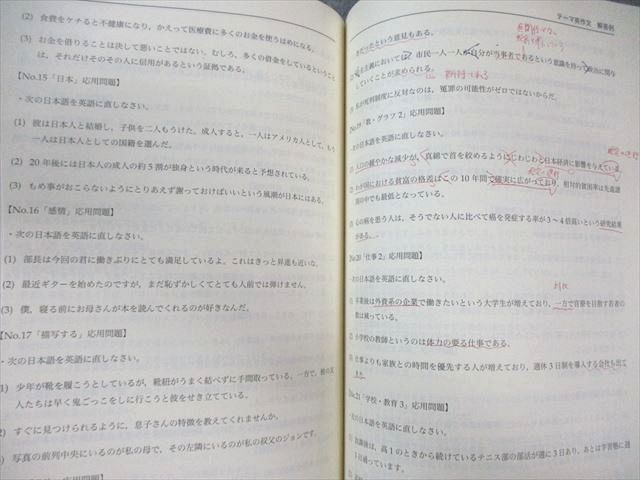 (2) 食費をケチると不健康になり、かえって医療費に多くのお金を使うはめになる。
(3) お金を借りることは決して悪いことではない。むしろ、多くの借金をしているということ
は、それだけその人に引用があるという証拠である。
【No.15「日本」応用問題】
・次の日本語を英語に直しなさい。
(1) 彼は日本人と結婚し、子供を二人もうけた。成人すると、一人はアメリカ人として、もう
一人は日本人としての国籍を選んだ。
(2) 20年後には日本人の成人の約5割が独身という時代が来ると予想されている。
(3) もめ事がおこらないようにとりあえず謝っておけばいいという風潮が日本にはある。
【No.16「感情」応用問題】
・次の日本語を英語に直しなさい。
(1) 部長は今回の君に働きぶりにとても満足しているよ。これはきっと昇進も近いな。
(2) 最近ギターを始めたのですが、まだ恥ずかしくてとても人前では弾けません。
(3) 僕、寝る前にお母さんが本を読んでくれるのが好きなんだ。
【No.17「描写する」応用問題】
・次の日本語を英語に直しなさい。
(1) 少年が靴を履こうとしているが、靴紐がうまく結べずに手間取っている。一方で、彼の友
人たちは早く鬼ごっこをしに行こうと彼をせき立てている。
(2) すぐに見つけられるように、息子さんの特徴を教えてくれませんか。
写真の前列中央にいるのが私の母で、その左隣にいるのが私の叔父のジョンです。
応用問題】
テーマ英作文 解答例
きだったという意見もある。
主主義においては、市民一人一人が自分が当事者であるという意識を持って政治に関与
していくことが求められる。
私が死刑制度に反対なのは、冤罪の可能性がゼロではないからだ。
・グラフ2」応用問題】
次の日本語を英語に直しなさい。
人口の緩やかな減少が、真綿で首を絞めるようにじわじわと日本経済に影響を与えている。
わが国における貧富の格差はこの10年間で確実に広がっており、相対的貧困率は先進諸
国の中でも最低となっている。
心の病を患う人は、そうでない人に比べて癌を発症する率が3～4倍高いという研究結果
がある。
【No.20「仕事2」応用問題】
次の日本語を英語に直しなさい。
卒業後は外資系の企業で働きたいという大学生が増えており、一方で官僚を目指す若者の
数は減っている。
小学校の教師というのは体力の要る仕事である。
仕事よりも家族との時間を優先する人が増えており、週休3日制を導入する会社も出て
きた。
【No.21「学校・教育3」応用問題】
次の日本語を英語に直しなさい。
放課後は、高1のときから続けているテニス部の部活が週に3日あり、あとは学習塾に週
1日通っています。